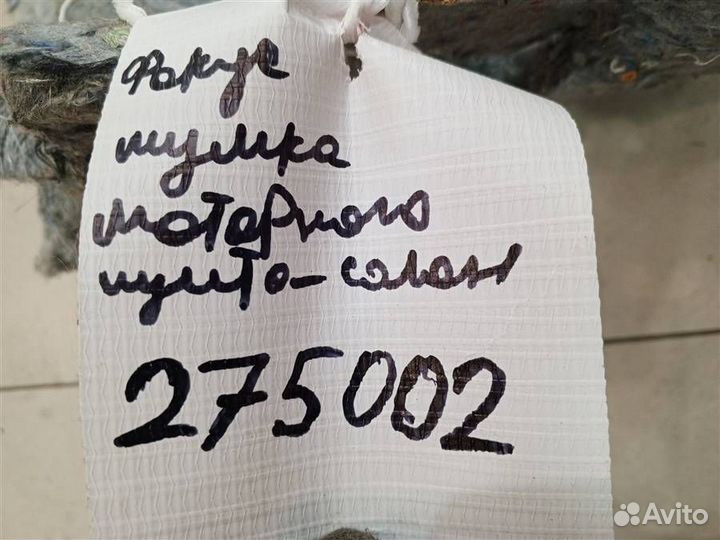 Фокус
шумка
моторного
щита-салон
275002
Avito